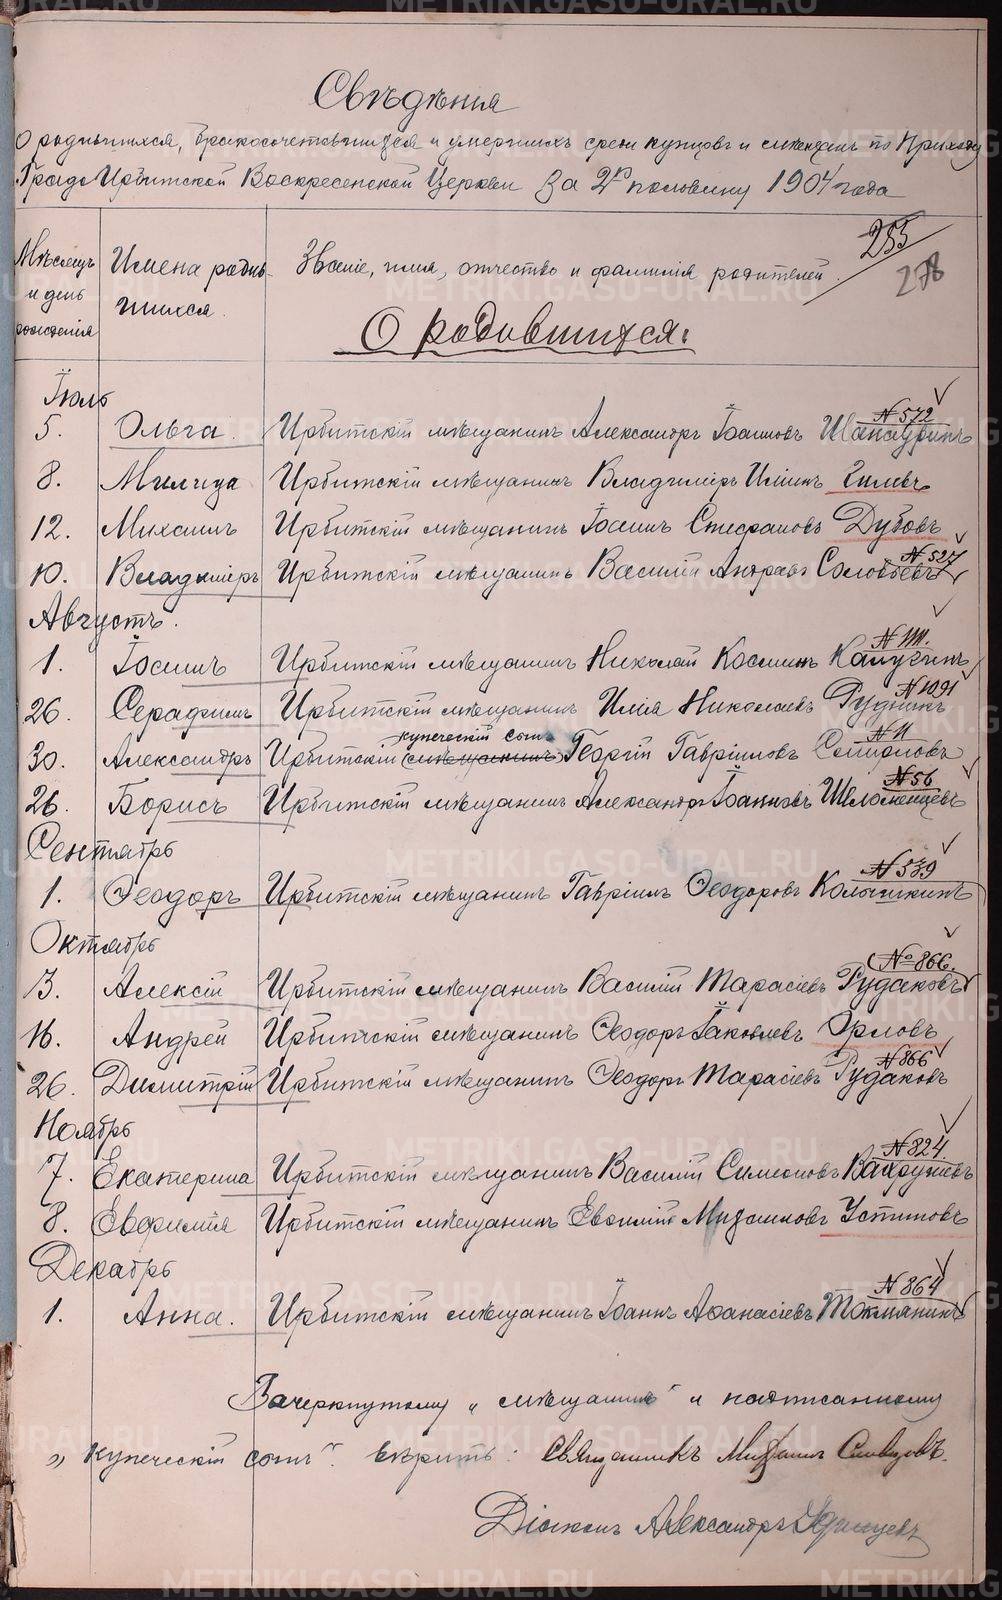 Свѣдѣнія
О родившихся, бракосочетавшихся и умершихъ среди купцовъ и мѣщанъ по Приходу
Градо Ирбитской Воскресенской Церкви за 2ю половину 1904 года
255
278
Мѣсяцъ и день рожденія
Имена родившихся.
Званіе, имя, отчество и фамилія родителей.
О родившихся:
Іюль
№ 572
5. Ольга. Ирбитскій мѣщанинъ Александръ Іоанновъ
8. Милица Ирбитскій мѣщанинъ Владиміръ Ильинъ
12. Михаилъ Ирбитскій мѣщанинъ Іоаннъ Стефановъ Дубовъ
№ 527
10. Владиміръ Ирбитскій мѣщанинъ Василій Андреевъ Соловьевъ
Августъ.
1. Іоаннъ Ирбитскій мѣщанинъ Николай Косминъ Калугинъ
№ 1091
26. Серафимъ Ирбитскій мѣщанинъ Илія Николаевъ Рудникъ
купеческій сынъ № 11
30. Александръ Ирбитскій (мѣщанинъ) Георгій Гавріиловъ
№ 56
26. Борисъ Ирбитскій мѣщанинъ Александръ Іоанновъ Шеломенцевъ
Сентябрь
№ 539
1. Ѳеодоръ Ирбитскій мѣщанинъ Гавріилъ Ѳеодоровъ Колошкинъ
Октябрь
№ 866.
3. Алексій Ирбитскій мѣщанинъ Василій Тарасіевъ Рудаковъ
16. Андрей Ирбитскій мѣщанинъ Ѳеодоръ Іаковлевъ Орловъ
№ 866
26. Димитрій Ирбитскій мѣщанинъ Ѳеодоръ Тарасіевъ Рудаковъ
Ноябрь
№ 824.
7. Екатерина Ирбитскій мѣщанинъ Василій Симеоновъ Вахрушевъ
8. Евфимія Ирбитскій мѣщанинъ Евфимій Михаиловъ Устиновъ
Декабрь
№ 864
1. Анна. Ирбитскій мѣщанинъ Іоаннъ Аѳанасіевъ Токманинъ
Зачеркнутому „мѣщанинъ" и надписанному
„купеческій сынъ". вѣрить: Священникъ Михаилъ
Діаконъ Александръ
METRIKI.GASO-URAL.RU